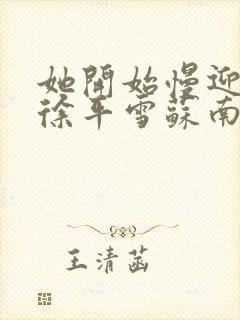 她開始慢迎
徐平雪蘇南
王清菡